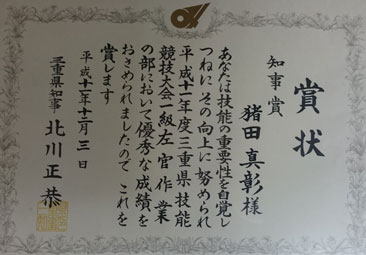 賞状
知事賞
猪田真彰様
あなたは技能の重要性を自覚し
つねにその向上に努められ
平成十一年度三重県技能
競技大会一級左官作業
の部において優秀な成績を
おさめられましたのでこれを
賞します
平成十一年十二月三日
三重県知事 北川正恭